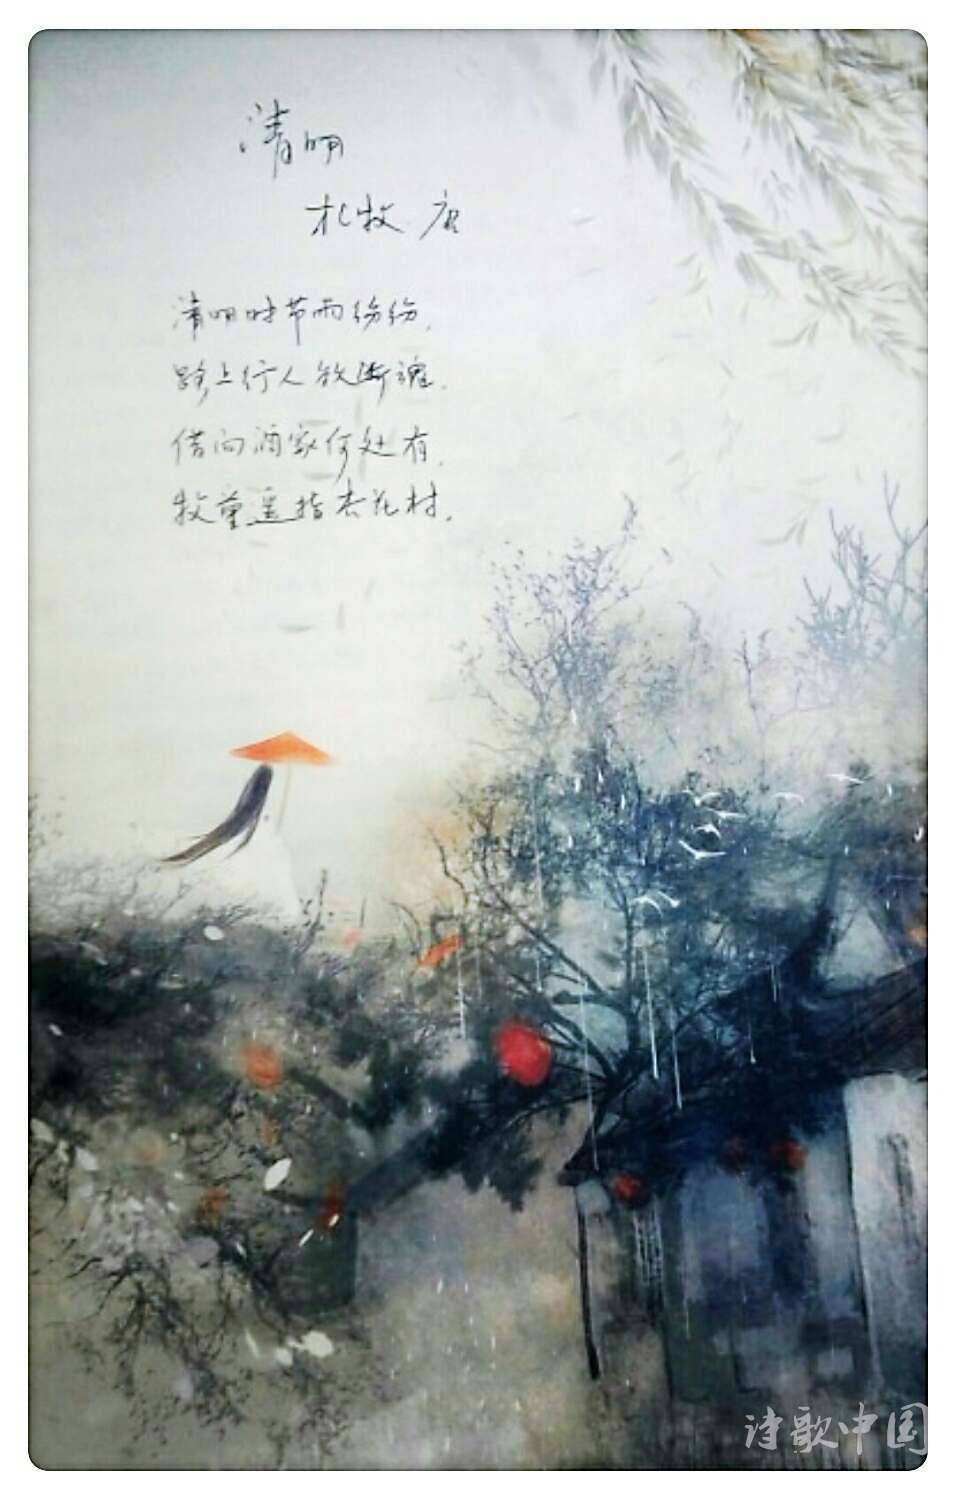 清明
杜牧 唐
清明时节雨纷纷,
路上行人欲断魂.
借问酒家何处有,
牧童遥指杏花村.
诗歌中国